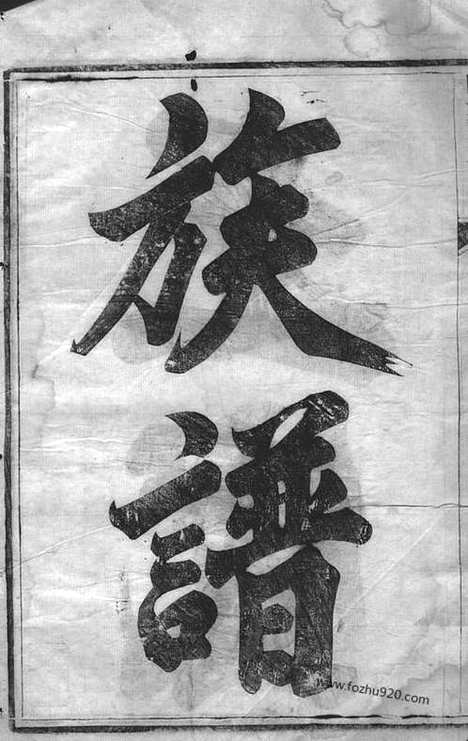 族
譜
www.fozhu920.com